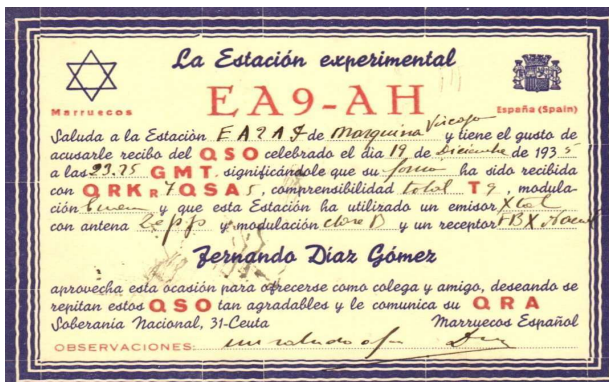 La Estación experimental
EA9-AH
Marruecos
España (Spain)
Saluda a la Estación EA2AI de Marquina Vizcaya y tiene el gusto de
acusarle recibo del QSO celebrado el dia 19 de Diciembre de 1935
a las 23.25 GMT. significándole que su fonia ha sido recibida
con QRK R7 QSA 5, comprensibilidad total T9, modula-
ción buena y que esta Estación ha utilizado un emisor Xtal
con antena Zepp y modulación clase B y un receptor FBX
Fernando Díaz Gómez
aprovecha esta ocasión para ofrecerse como colega y amigo, deseando se
repitan estos QSO tan agradables y le comunica su QRA
Soberania Nacional, 31-Ceuta Marruecos Español
OBSERVACIONES: un saludo